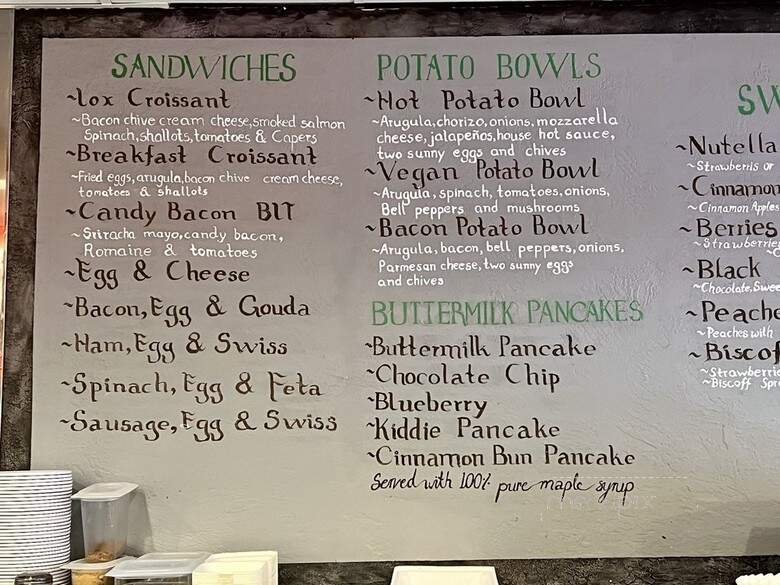 SANDWICHES
~Lox Croissant
~Bacon chive cream cheese, smoked salmon
Spinach, shallots, tomatoes & Capers
~Breakfast Croissant
~Fried eggs, arugula, bacon chive cream cheese,
tomatoes & shallots
~Candy Bacon BLT
~Sriracha mayo, candy bacon,
Romaine & tomatoes
~Egg & Cheese
~Bacon, Egg & Gouda
~Ham, Egg & Swiss
~Spinach, Egg & Feta
~Sausage, Egg & Swiss
POTATO BOWLS
~Hot Potato Bowl
~Arugula, chorizo, onions, mozzarella
cheese, jalapeños, house hot sauce,
two sunny eggs and chives
~Vegan Potato Bowl
~Arugula, spinach, tomatoes, onions,
Bell peppers and mushrooms
~Bacon Potato Bowl
~Arugula, bacon, bell peppers, onions,
Parmesan cheese, two sunny eggs
and chives
BUTTERMILK PANCAKES
~Buttermilk Pancake
~Chocolate Chip
~Blueberry
~Kiddie Pancake
~Cinnamon Bun Pancake
Served with 100% pure maple syrup
SW
~Nutella
~Strawberris or
~Cinnamon
~Cinnamon Apples
~Berries
~Strawberries
~Black
~Chocolate, Swee
~Peache
~Peaches with
~Biscof
~Strawberrie
~Biscoff Spr